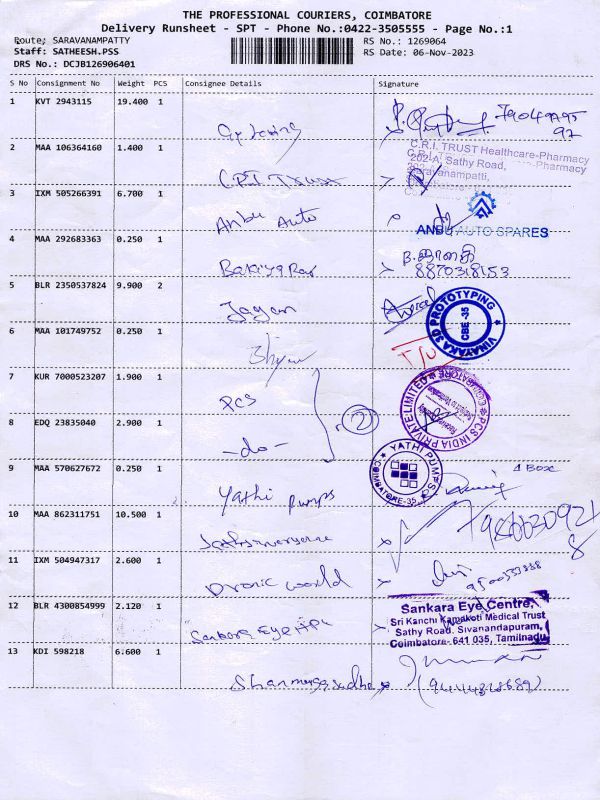 THE PROFESSIONAL COURIERS, COIMBATORE
Delivery Runsheet - SPT - Phone No.:0422-3505555 - Page No.:1
Route: SARAVANAMPATTY
RS No.: 1269064
Staff: SATHEESH.PSS
RS Date: 06-Nov-2023
DRS No.: DCJB126906401
S No Consignment No Weight PCS Consignee Details Signature
1 KVT 2943115 19.400 1
2 MAA 106364160 1.400 1 C.R.I Trust
C.R.I. TRUST Healthcare-Pharmacy
202-A, Sathy Road,
Saravanampatti,
3 IXM 505266391 6.700 1 Anbu Auto
ANBU AUTO SPARES
4 MAA 292683363 0.250 1 Bakiya Raj
8870318153
5 BLR 2350537824 9.900 2 Jayan
VINAYAKA 3D PROTOTYPING
CBE-35
6 MAA 101749752 0.250 1
7 KUR 7000523207 1.900 1 PCS
PCS INDIA PRIVATE LIMITED
COIMBATORE
2
8 EDQ 23835040 2.900 1 -do-
9 MAA 570627672 0.250 1 Yathi Pumps
YATHI PUMPS
COIMBATORE-35
1 Box
10 MAA 862311751 10.500 1
9860309218
11 IXM 504947317 2.600 1 Dronic world
12 BLR 4300854999 2.120 1 Sankara Eye
Sankara Eye Centre,
Sri Kanchi Kamakoti Medical Trust
Sathy Road, Sivanandapuram,
Coimbatore- 641 035, Tamilnadu
13 KDI 598218 6.600 1